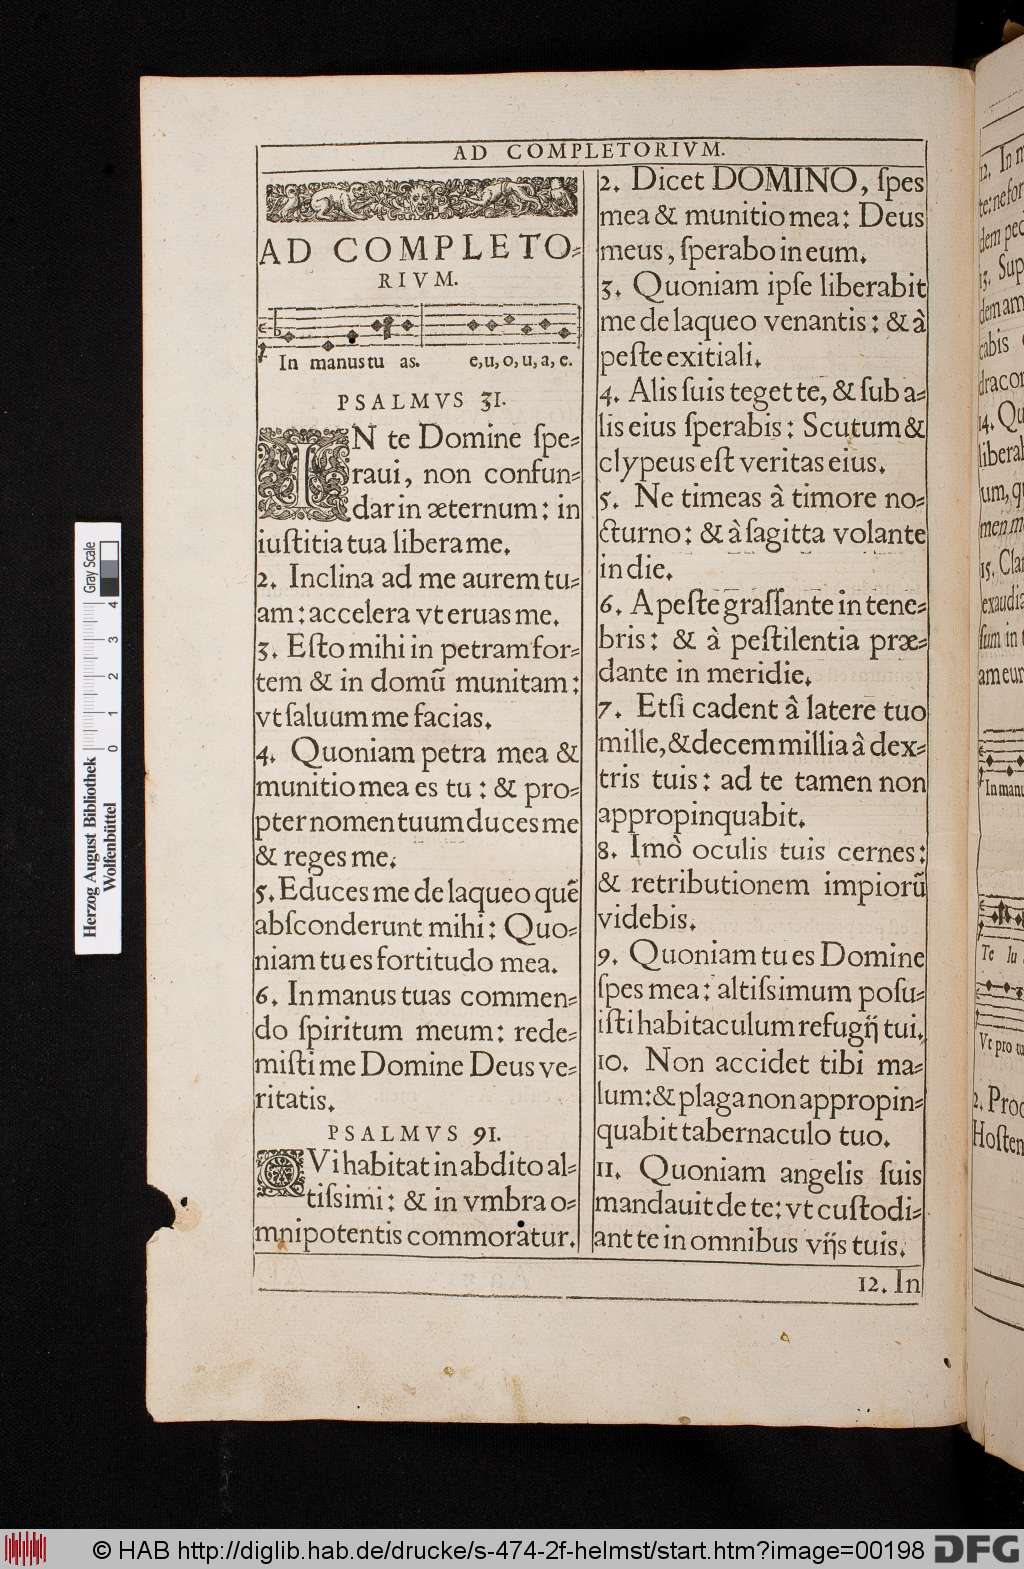 AD COMPLETORIVM.
AD COMPLETO-
RIVM.
In manus tu as. e, u, o, u, a, e.
PSALMVS 31.
IN te Domine ſpe-
raui, non confun-
dar in æternum: in
iuſtitia tua libera me.
2. Inclina ad me aurem tu-
am: accelera vt eruas me.
3. Eſto mihi in petram for-
tem & in domũ munitam:
vt ſaluum me facias.
4. Quoniam petra mea &
munitio mea es tu: & pro-
pter nomen tuum duces me
& reges me.
5. Educes me de laqueo quẽ
abſconderunt mihi: Quo-
niam tu es fortitudo mea.
6. In manus tuas commen-
do ſpiritum meum: rede-
miſti me Domine Deus ve-
ritatis.
PSALMVS 91.
QVi habitat in abdito al-
tiſsimi: & in vmbra o-
mnipotentis commoratur.
2. Dicet DOMINO, ſpes
mea & munitio mea: Deus
meus, ſperabo in eum.
3. Quoniam ipſe liberabit
me de laqueo venantis: & à
peſte exitiali.
4. Alis ſuis teget te, & ſub a-
lis eius ſperabis: Scutum &
clypeus eſt veritas eius.
5. Ne timeas à timore no-
cturno: & à ſagitta volante
in die.
6. A peſte graſſante in tene-
bris: & à peſtilentia præ-
dante in meridie.
7. Etſi cadent à latere tuo
mille, & decem millia à dex-
tris tuis: ad te tamen non
appropinquabit.
8. Imò oculis tuis cernes:
& retributionem impiorũ
videbis.
9. Quoniam tu es Domine
ſpes mea: altiſsimum poſu-
iſti habitaculum refugij tui.
10. Non accidet tibi ma-
lum: & plaga non appropin-
quabit tabernaculo tuo.
11. Quoniam angelis ſuis
mandauit de te: vt cuſtodi-
ant te in omnibus vijs tuis.
12. In
12. In
dem
13. Sup
dem am
cabis
14. Qu
15. Cla
ſum in
am eur
In manu
Te lu
Vt pro tu
2. Proc
Hoſten
Herzog August Bibliothek
Wolfenbüttel
0 1 2 3 4
Gray Scale
© HAB http://diglib.hab.de/drucke/s-474-2f-helmst/start.htm?image=00198
DFG